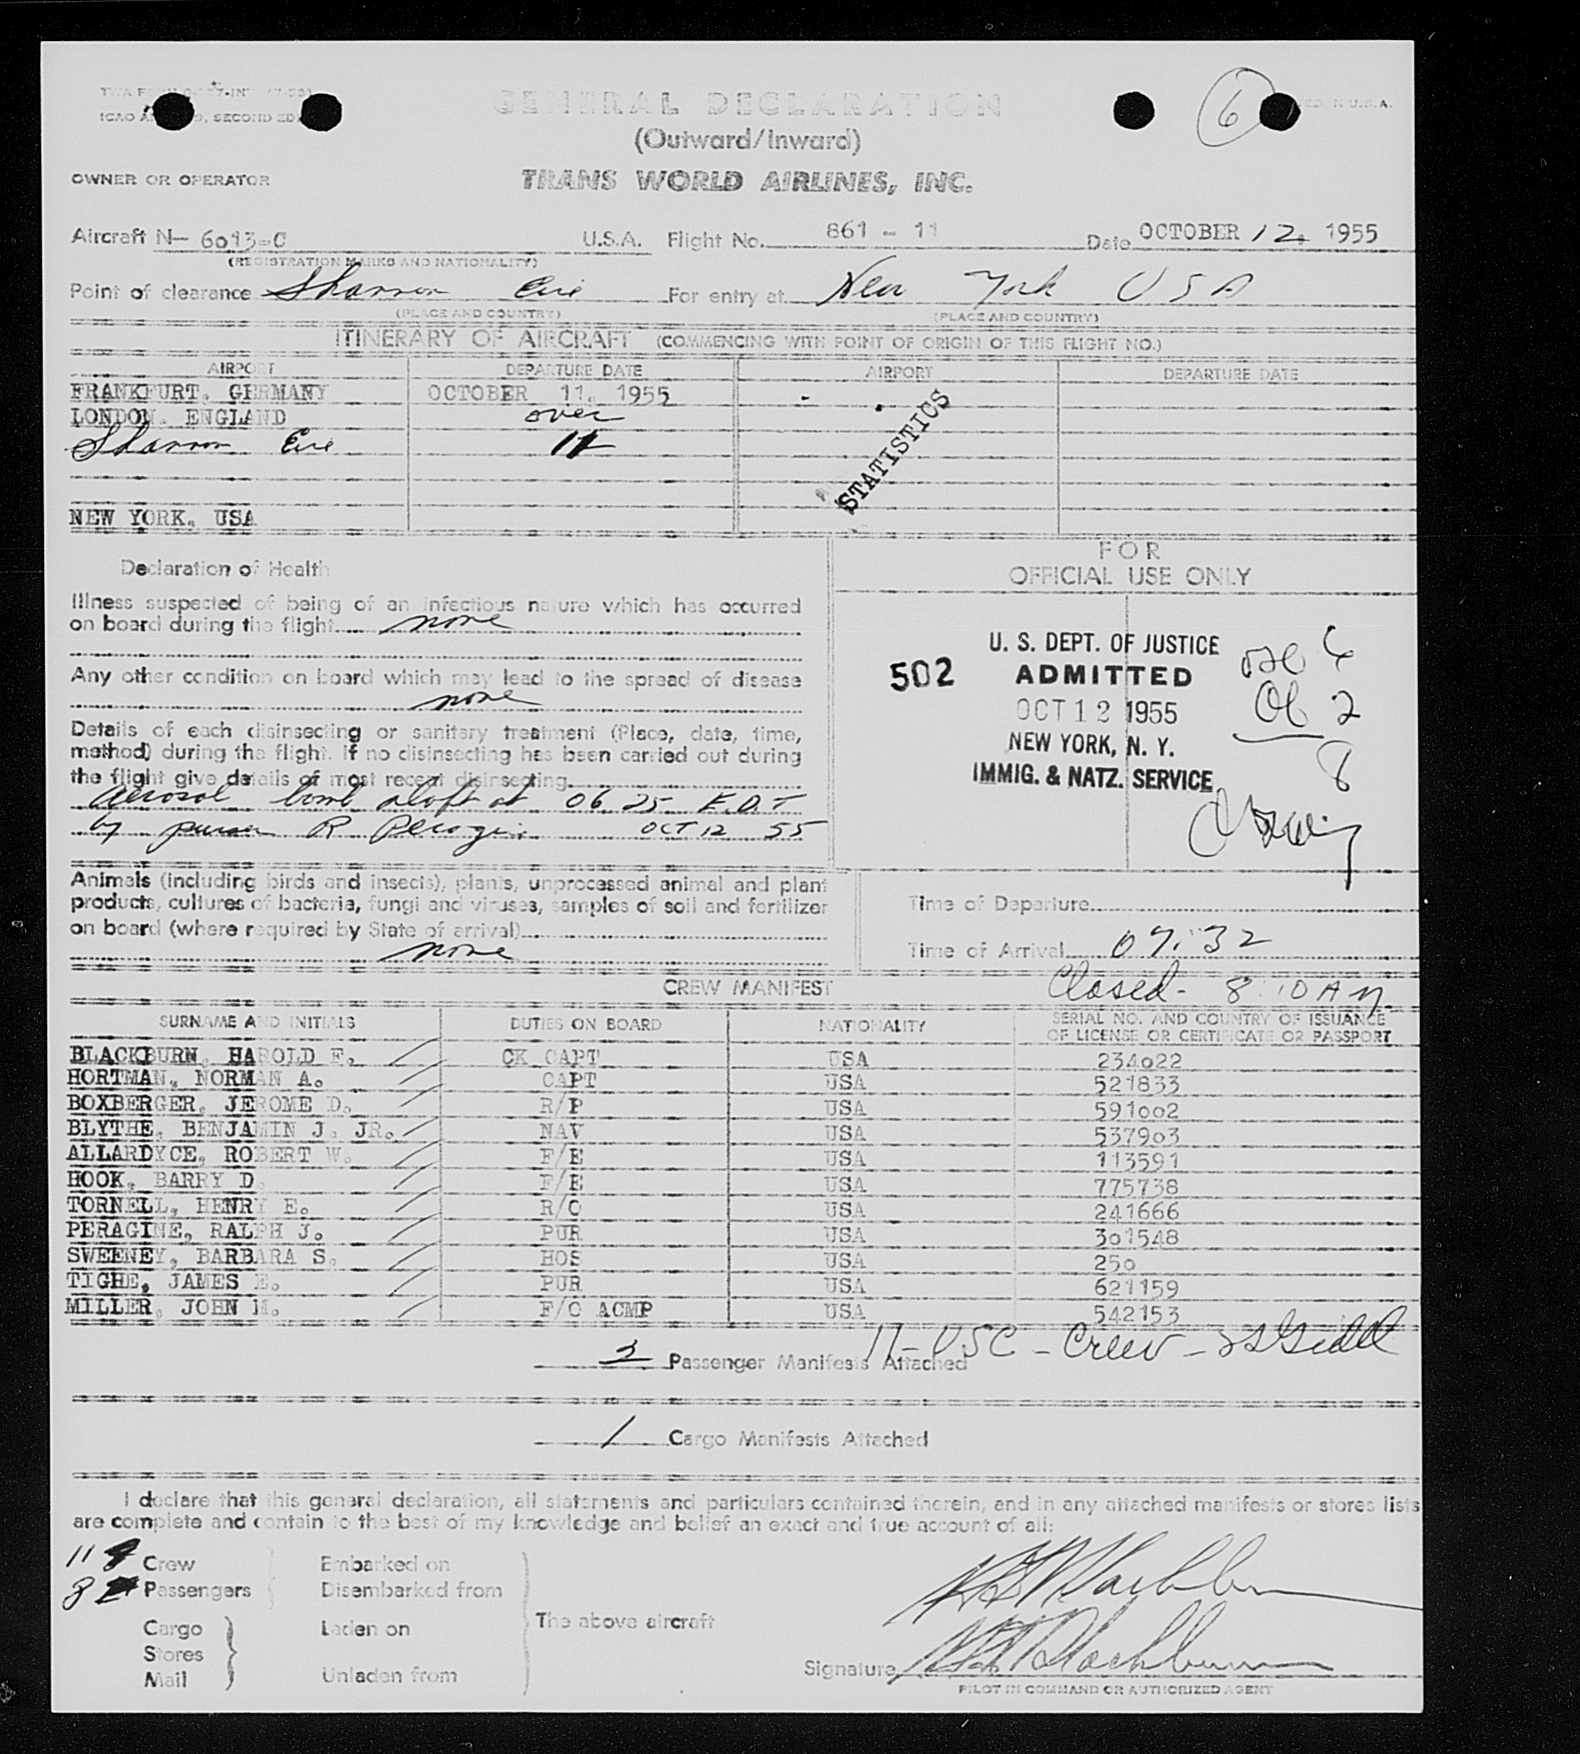 GENERAL DECLARATION
(Outward/Inward)
6
OWNER OR OPERATOR
TRANS WORLD AIRLINES, INC.
Aircraft N- 6013-C U.S.A. Flight No. 861 - 11 Date OCTOBER 12, 1955
(REGISTRATION MARKS AND NATIONALITY)
Point of clearance Shannon Eire For entry at New York USA
(PLACE AND COUNTRY) (PLACE AND COUNTRY)
ITINERARY OF AIRCRAFT (COMMENCING WITH POINT OF ORIGIN OF THIS FLIGHT NO.)
AIRPORT DEPARTURE DATE AIRPORT DEPARTURE DATE
FRANKFURT, GERMANY OCTOBER 11, 1955
LONDON, ENGLAND over
Shannon Eire
STATISTICS
NEW YORK, USA
Declaration of Health
Illness suspected of being of an infectious nature which has occurred
on board during the flight none
Any other condition on board which may lead to the spread of disease
none
Details of each disinsecting or sanitary treatment (Place, date, time,
method) during the flight. If no disinsecting has been carried out during
the flight give details of most recent disinsecting
Aerosol bomb aloft at 06 25 E.D.T
by purser R OCT 12 55
FOR
OFFICIAL USE ONLY
U. S. DEPT. OF JUSTICE
502 ADMITTED
OCT 12 1955
NEW YORK, N. Y.
IMMIG. & NATZ. SERVICE
6
2
8
Animals (including birds and insects), plants, unprocessed animal and plant
products, cultures of bacteria, fungi and viruses, samples of soil and fertilizer
on board (where required by State of arrival)
none
Time of Departure
Time of Arrival 07:32
CREW MANIFEST Closed - 8:10 AM
SURNAME AND INITIALS DUTIES ON BOARD NATIONALITY SERIAL NO. AND COUNTRY OF ISSUANCE
OF LICENSE OR CERTIFICATE OR PASSPORT
BLACKBURN, HAROLD F. CK CAPT USA 234022
HORTMAN, NORMAN A. CAPT USA 521833
BOXBERGER, JEROME D. R/P USA 591002
BLYTHE, BENJAMIN J. JR. NAV USA 537903
ALLARDYCE, ROBERT W. F/E USA 113591
HOOK, BARRY D. F/E USA 775738
TORNELL, HENRY E. R/O USA 241666
PERAGINE, RALPH J. PUR USA 301548
SWEENEY, BARBARA S. HOS USA 250
TIGHE, JAMES E. PUR USA 621159
MILLER, JOHN M. F/O ACMP USA 542153
11 - USC - Crew -
Passenger Manifests Attached
1 Cargo Manifests Attached
I declare that this general declaration, all statements and particulars contained therein, and in any attached manifests or stores lists
are complete and contain to the best of my knowledge and belief an exact and true account of all:
11 Crew Embarked on
8 Passengers Disembarked from
The above aircraft
Cargo Laden on
Stores
Mail Unladen from
Signature
PILOT IN COMMAND OR AUTHORIZED AGENT